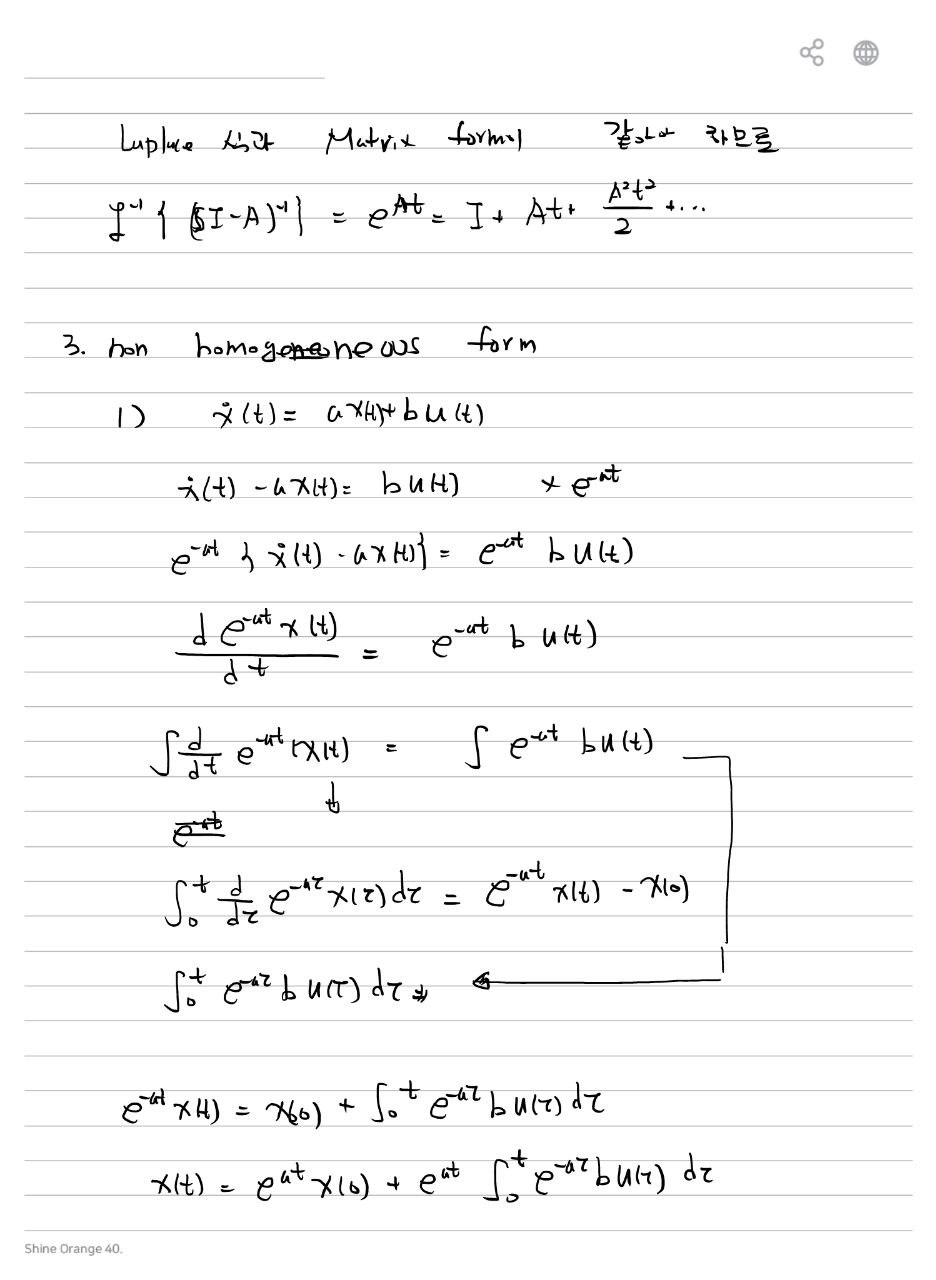 Laplace 식과 Matrix form이 같아야 하므로
ℒ⁻¹{(sI-A)⁻¹} = e^{At} = I + At + A²t²/2 + ...
3. non homogeneous form
1) ẋ(t) = ax(t) + bu(t)
ẋ(t) - ax(t) = bu(t) × e^{-at}
e^{-at} {ẋ(t) - ax(t)} = e^{-at} bu(t)
d e^{-at} x(t) / dt = e^{-at} b u(t)
∫ d/dt e^{-at} x(t) = ∫ e^{-at} bu(t)
↓
∫₀ᵗ d/dτ e^{-aτ} x(τ) dτ = e^{-at} x(t) - x(0)
∫₀ᵗ e^{-aτ} b u(τ) dτ
e^{-at} x(t) = x(0) + ∫₀ᵗ e^{-aτ} b u(τ) dτ
x(t) = e^{at} x(0) + e^{at} ∫₀ᵗ e^{-aτ} b u(τ) dτ
Shine Orange 40.